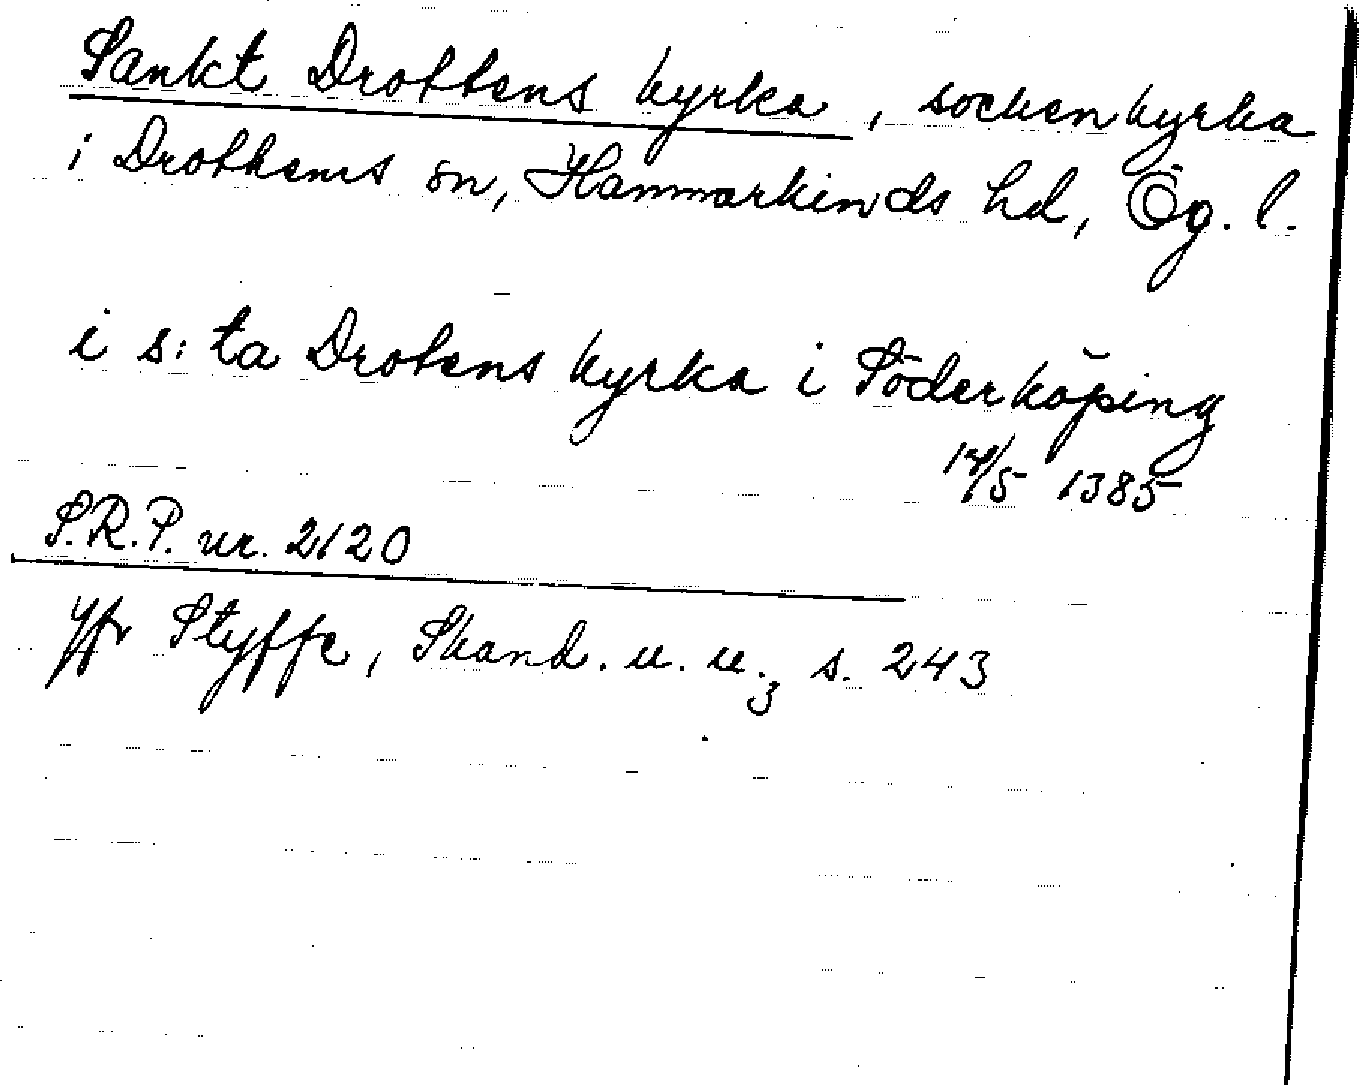 Sankt Drottens kyrka, sockenkyrka
i Drothems sn, Hammarkinds hd, Ög. l.
i s:ta Drotens kyrka i Söderköping
14/5 1385
S.R.P. nr. 2120
Jfr Styffe, Skand. u. u.3 s. 243